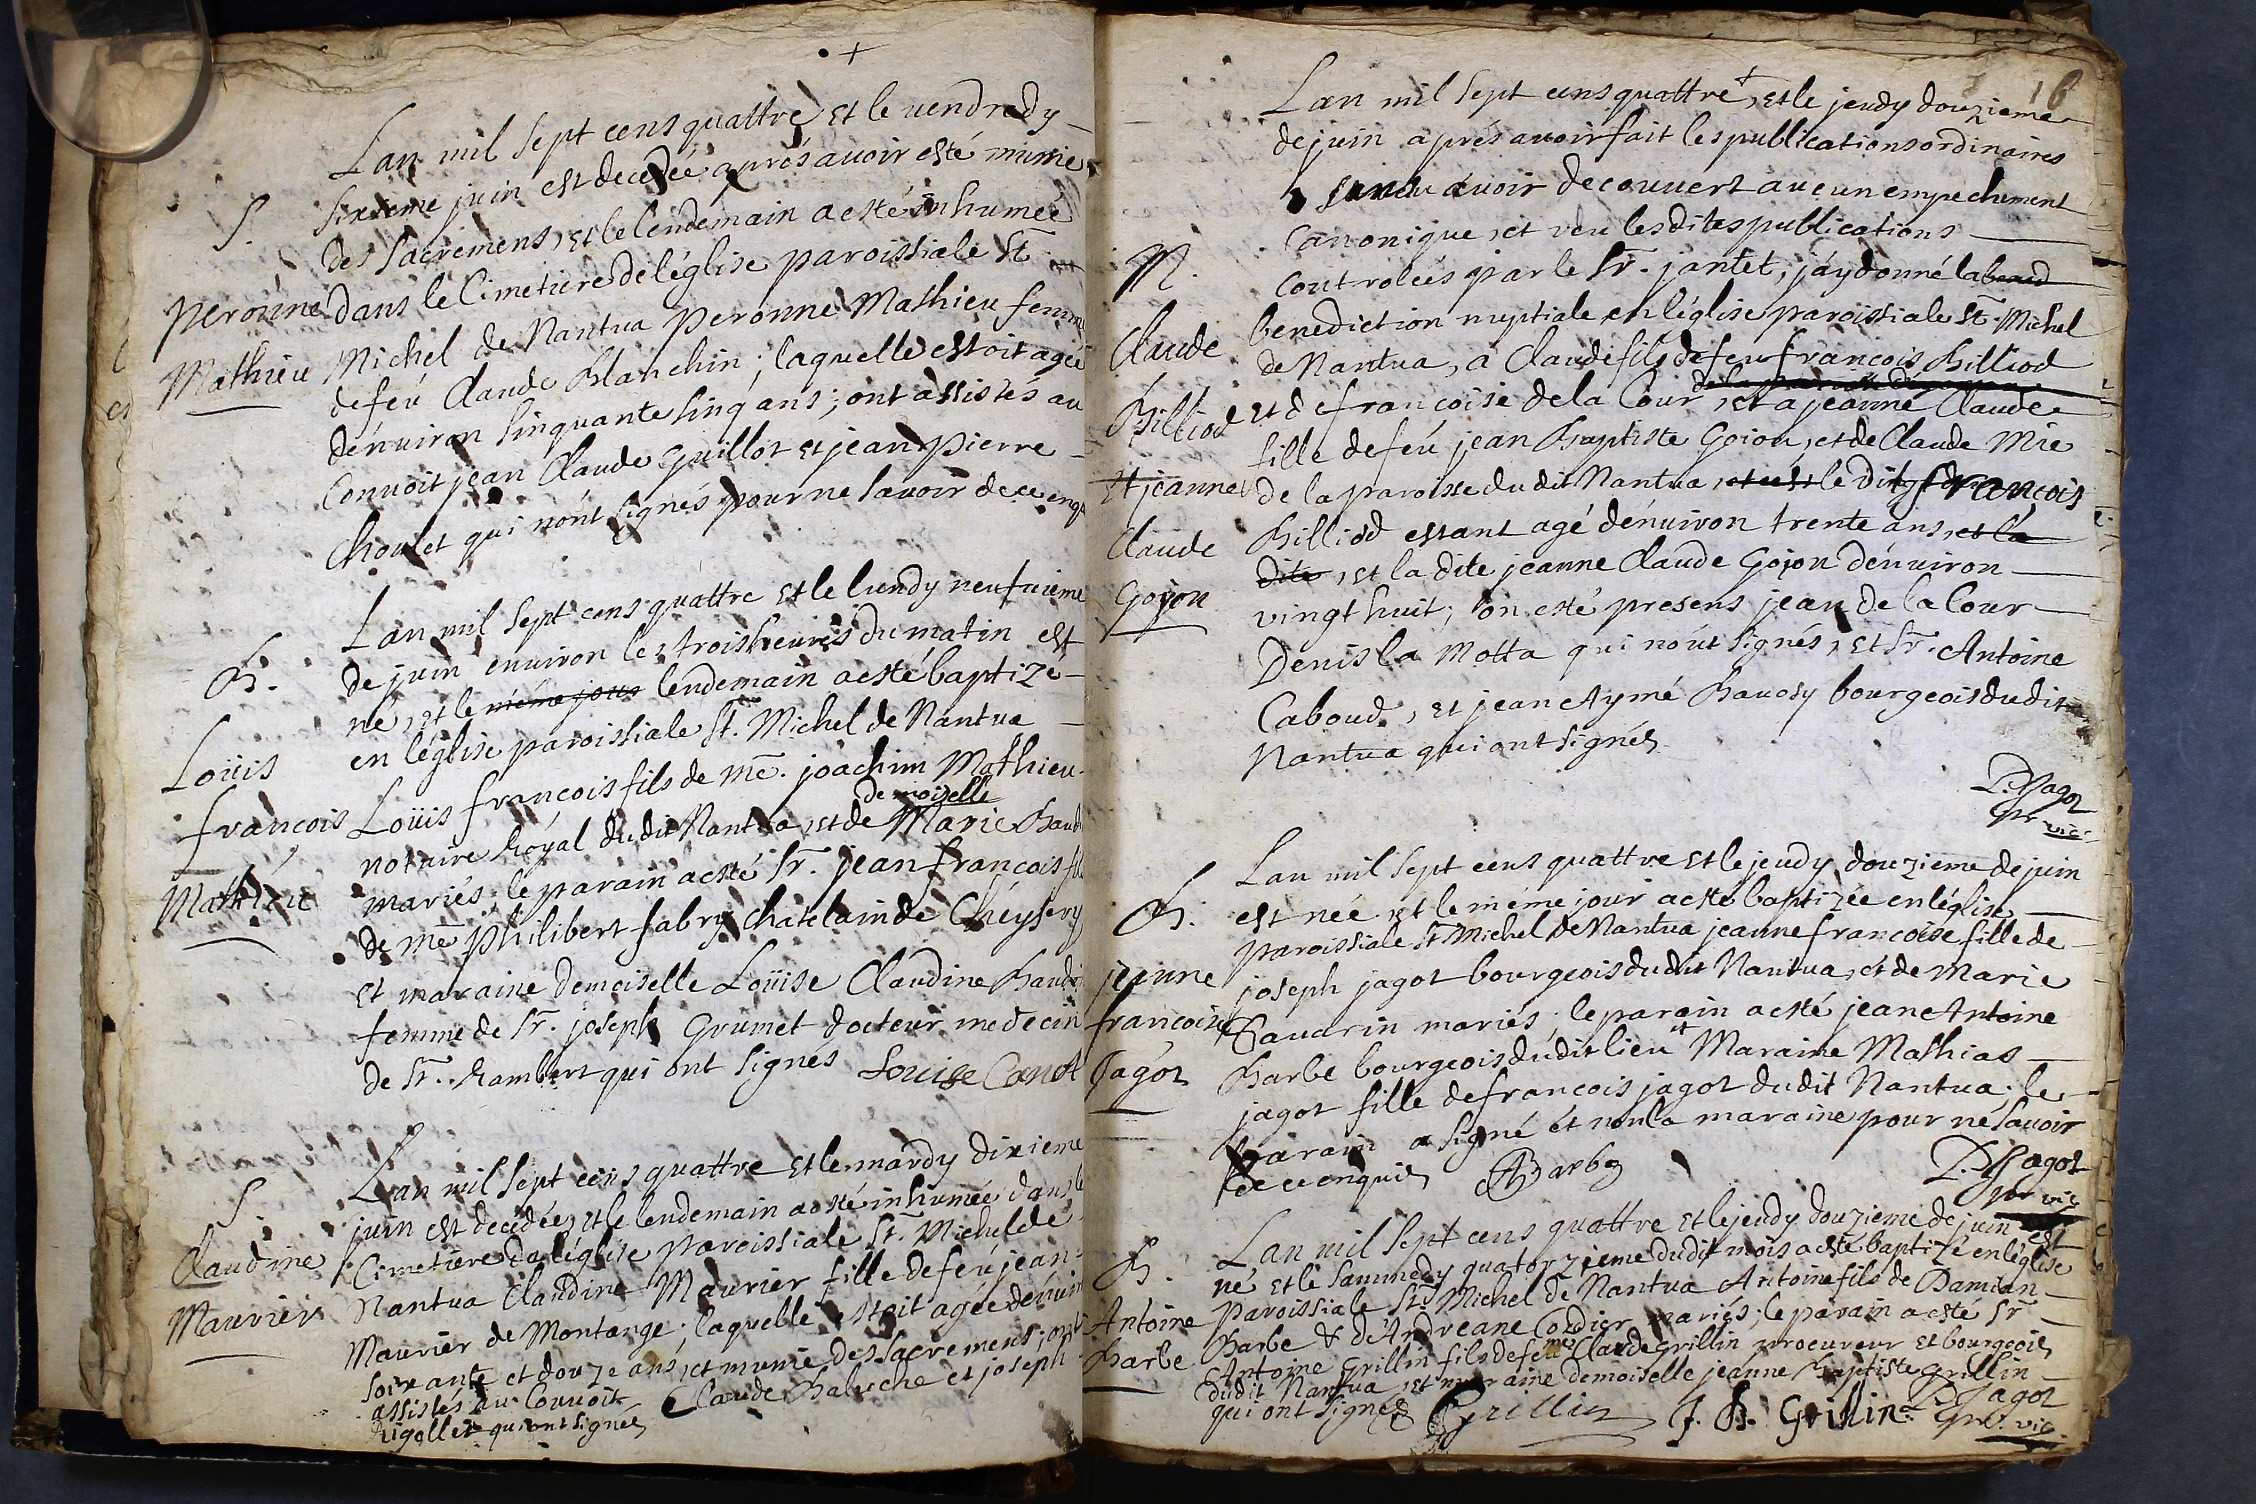 Lan mil sept cens quattre et le vendredy
S. sixieme juin est decedée aprés avoir esté munie
des sacremens, et le lendemain a esté inhumée
peronne dans le Cimetiere de léglise paroissiale St
Mathieu Michel de Nantua peronne Mathieu femme
de feu Claude Blanchin; laquelle estoit agée
dénuiron sinquante sinq ans; ont assistés au
Conuoit jean Claude Guillot et jean pierre
Choulet qui nónt signés pour ne savoir de ce enquis
Lan mil sept cens quattre et le lundy neufuieme
B. de juin enuiron les trois heures du matin est
né, et le méme jour lendemain a esté baptizé
en léglise paroissiale St. Michel de Nantua
Loüis Loüis françois fils de me. joachim Mathieu
demoiselle
françois notaire Royal dudit Nantua, et de Marie
mariés; le parain a esté Sr. jean françois fils
Mathieu de me philibert fabry Chatelain de Cheysery
et maraine demoiselle Loüise Claudine
femme de Sr. joseph Grumet docteur medecin
de St. Rambert qui ont signés Louise
Lan mil sept cens quattre et le mardy dixieme
S. juin est decedée, et le lendemain a esté inhumée dans le
Claudine Cimetiere de léglise paroissiale St. Michel de
Maurier Nantua Claudine Maurier fille de feu jean
Maurier de Montange; laquelle estoit agée dénuiron
soixante et douze ans, et munie des sacremens; ont
assistés au Conuoit Claude Baluche et joseph
Rigollet qui ont signés
16
Lan mil sept cens quattre, et le jeudy douzieme
de juin aprés avoir fait les publications ordinaires
avoir decouvert aucun empechement
Canonique, et veu lesdites publications
M. Controlées par le Sr. jantet, jáy donné la
Claude benediction nuptiale en léglise paroissiale St. Michel
de Nantua, a Claude fils de feu françois Billiod
Billiod et de françoise de la Cour, et a jeanne Claude
fille de feu jean Baptiste Gojon, et de Claude Mie
et jeanne de la paroisse dudit Nantua le dit françois
Claude Billiod estant agé dénuiron trente ans, et la
Gojon dite, et la dite jeanne Claude Gojon dénuiron
vingt huit; on esté presens jean de la Cour
Denis la Motta qui nónt signés, et Sr. Antoine
Caboud, et jean Aymé Bavosy bourgeois dudit
Nantua qui ont signés
P. Jagot
vic.
Lan mil sept cens quattre et le jeudy douzieme de juin
B. est née, et le méme jour a esté baptizée en léglise
paroissiale St Michel de Nantua jeanne françoise fille de
jeanne joseph jagot bourgeois dudit Nantua, et de Marie
françoise Savarin mariés; le parain a esté jean Antoine
Jagot Barbe bourgeois dudit lieu et Maraine Mathias
jagot fille de françois jagot dudit Nantua; le
parain a signé et non la maraine pour ne savoir
de ce enquis Barbe P. Jagot
vic
Lan mil sept cens quattre et le jeudy douzieme de juin est
B. né et le sammedy quatorzieme dudit mois a esté baptizé en léglise
Antoine paroissiale St. Michel de Nantua Antoine fils de Damian
Barbe Barbe & dAndreane Cordier mariés; le parain a esté Sr
Antoine Grillin fils de feu me Claude Grillin procureur et bourgeois
dudit Nantua, et maraine demoiselle jeanne Baptiste Grillin
qui ont signés Grillin J. B. Grillin P. Jagot
vic.